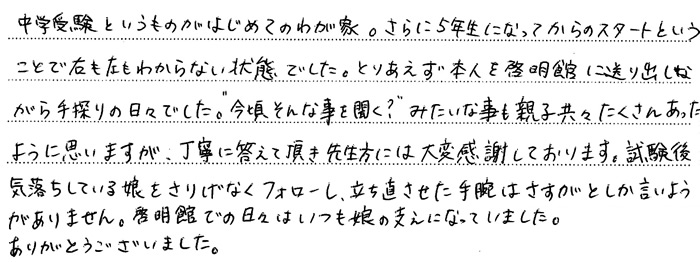 中学受験というものがはじめてのわが家。さらに5年生になってからのスタートという
ことで右も左もわからない状態でした。とりあえず本人を啓明館に送り出しな
がら手探りの日々でした。“今頃そんな事を聞く？”みたいな事も親子共々たくさんあった
ように思いますが、丁寧に答えて頂き先生方には大変感謝しております。試験後
気落ちしている娘をさりげなくフォローし、立ち直させた手腕はさすがとしか言いよう
がありません。啓明館での日々はいつも娘の支えになっていました。
ありがとうございました。